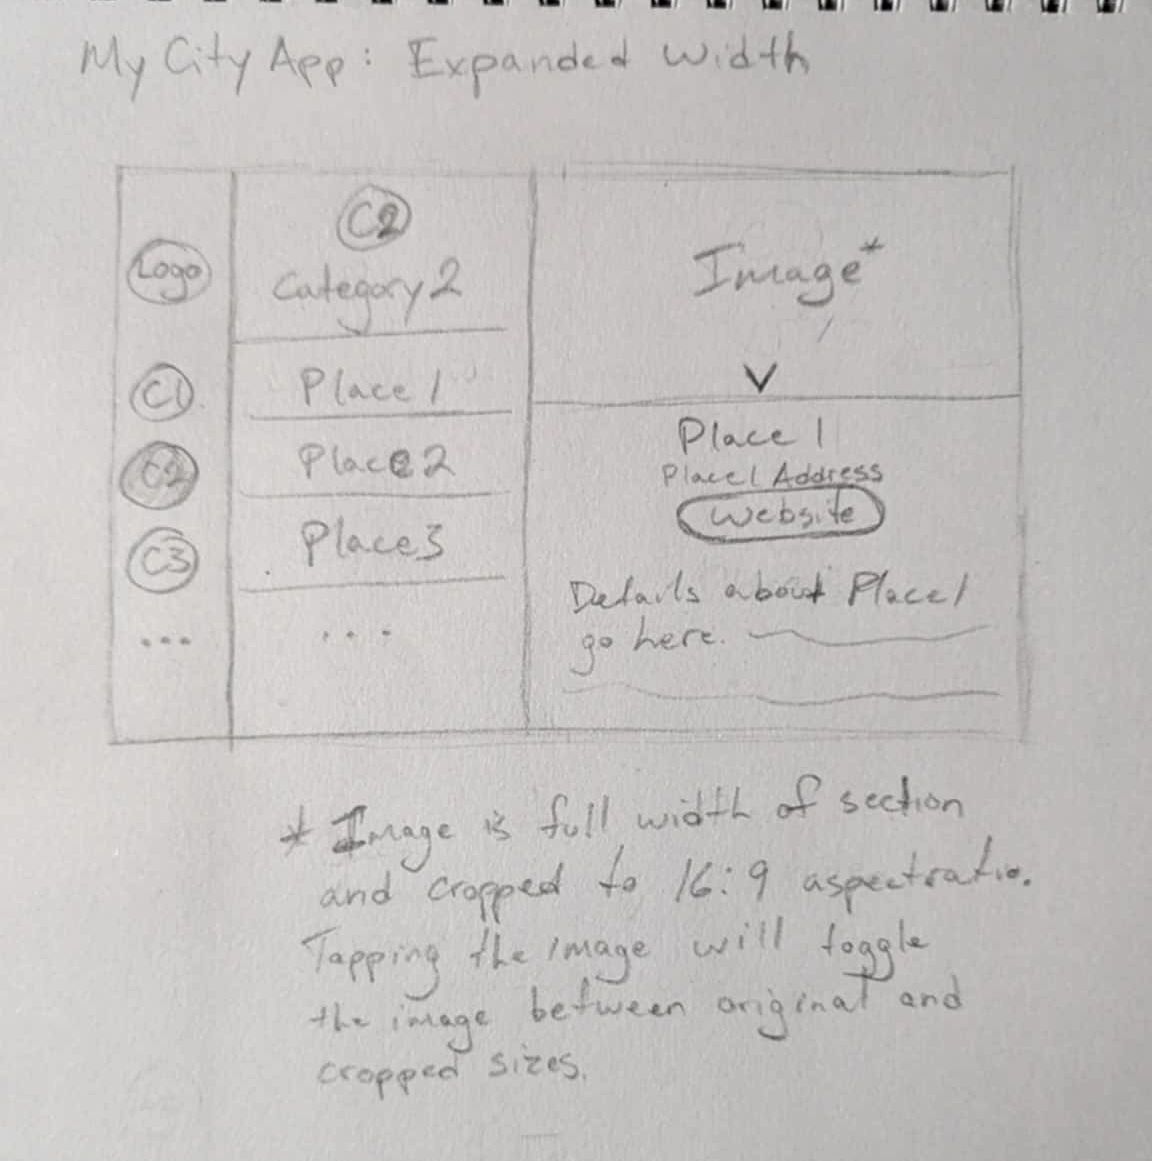 My City App: Expanded Width
Logo
C1
C2
C3
...
C2
Category 2
Place 1
Place 2
Place 3
...
Image*
Place 1
Place 1 Address
Website
Details about Place 1
go here.
* Image is full width of section
and cropped to 16:9 aspect ratio.
Tapping the image will toggle
the image between original and
cropped sizes.